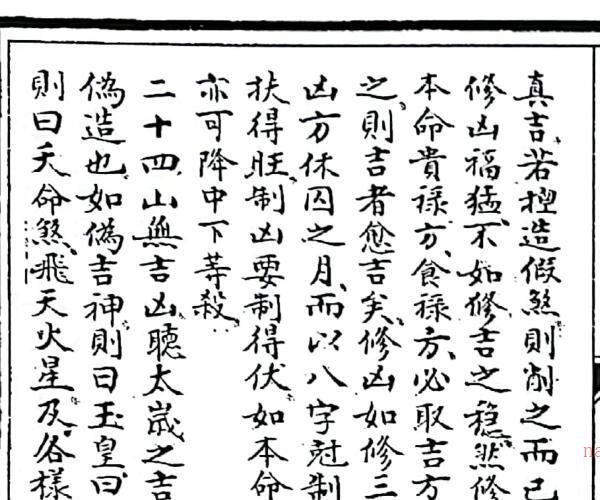 真吉若捏造假煞則削之而已
修凶福猛不如修吉之穩然修
本命貴祿方食祿方必取吉方
之則吉者愈吉矣修凶如修三
凶方休囚之月而以八字尅制
扶得旺制凶要制得伏如本命
亦可降中下等殺
二十四山無吉凶聽太歲之吉
偽造也如偽吉神則曰玉皇曰
則曰天命煞飛天火星及各樣
na